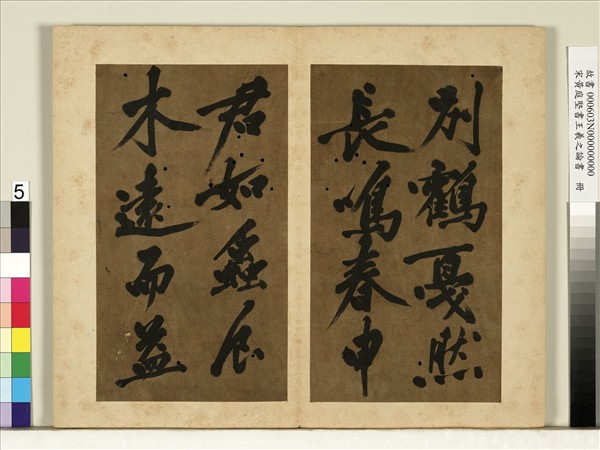 別鶴戞然
長鳴春申
君如蟲食
木遠而益
故書 000603N000000000
宋黃庭堅書王羲之論書 冊
5